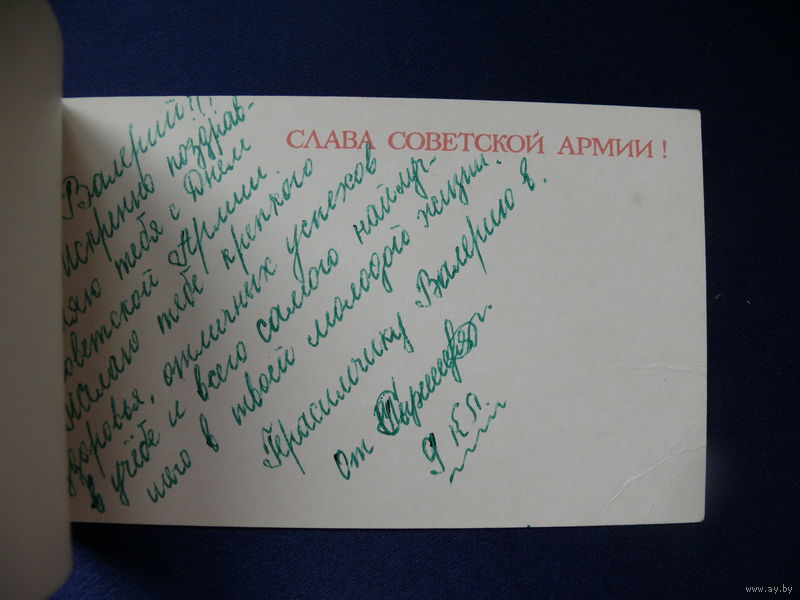 СЛАВА СОВЕТСКОЙ АРМИИ !
Валерий!!!
Искренно поздрав-
ляю тебя с Днём
Советской Армии
Желаю тебе крепкого
здоровья, отличных успехов
в учёбе и всего самого наилуч-
шего в твоей молодой жизни.
Герасимчику Валерию
от
9 кл.
www.ay.by